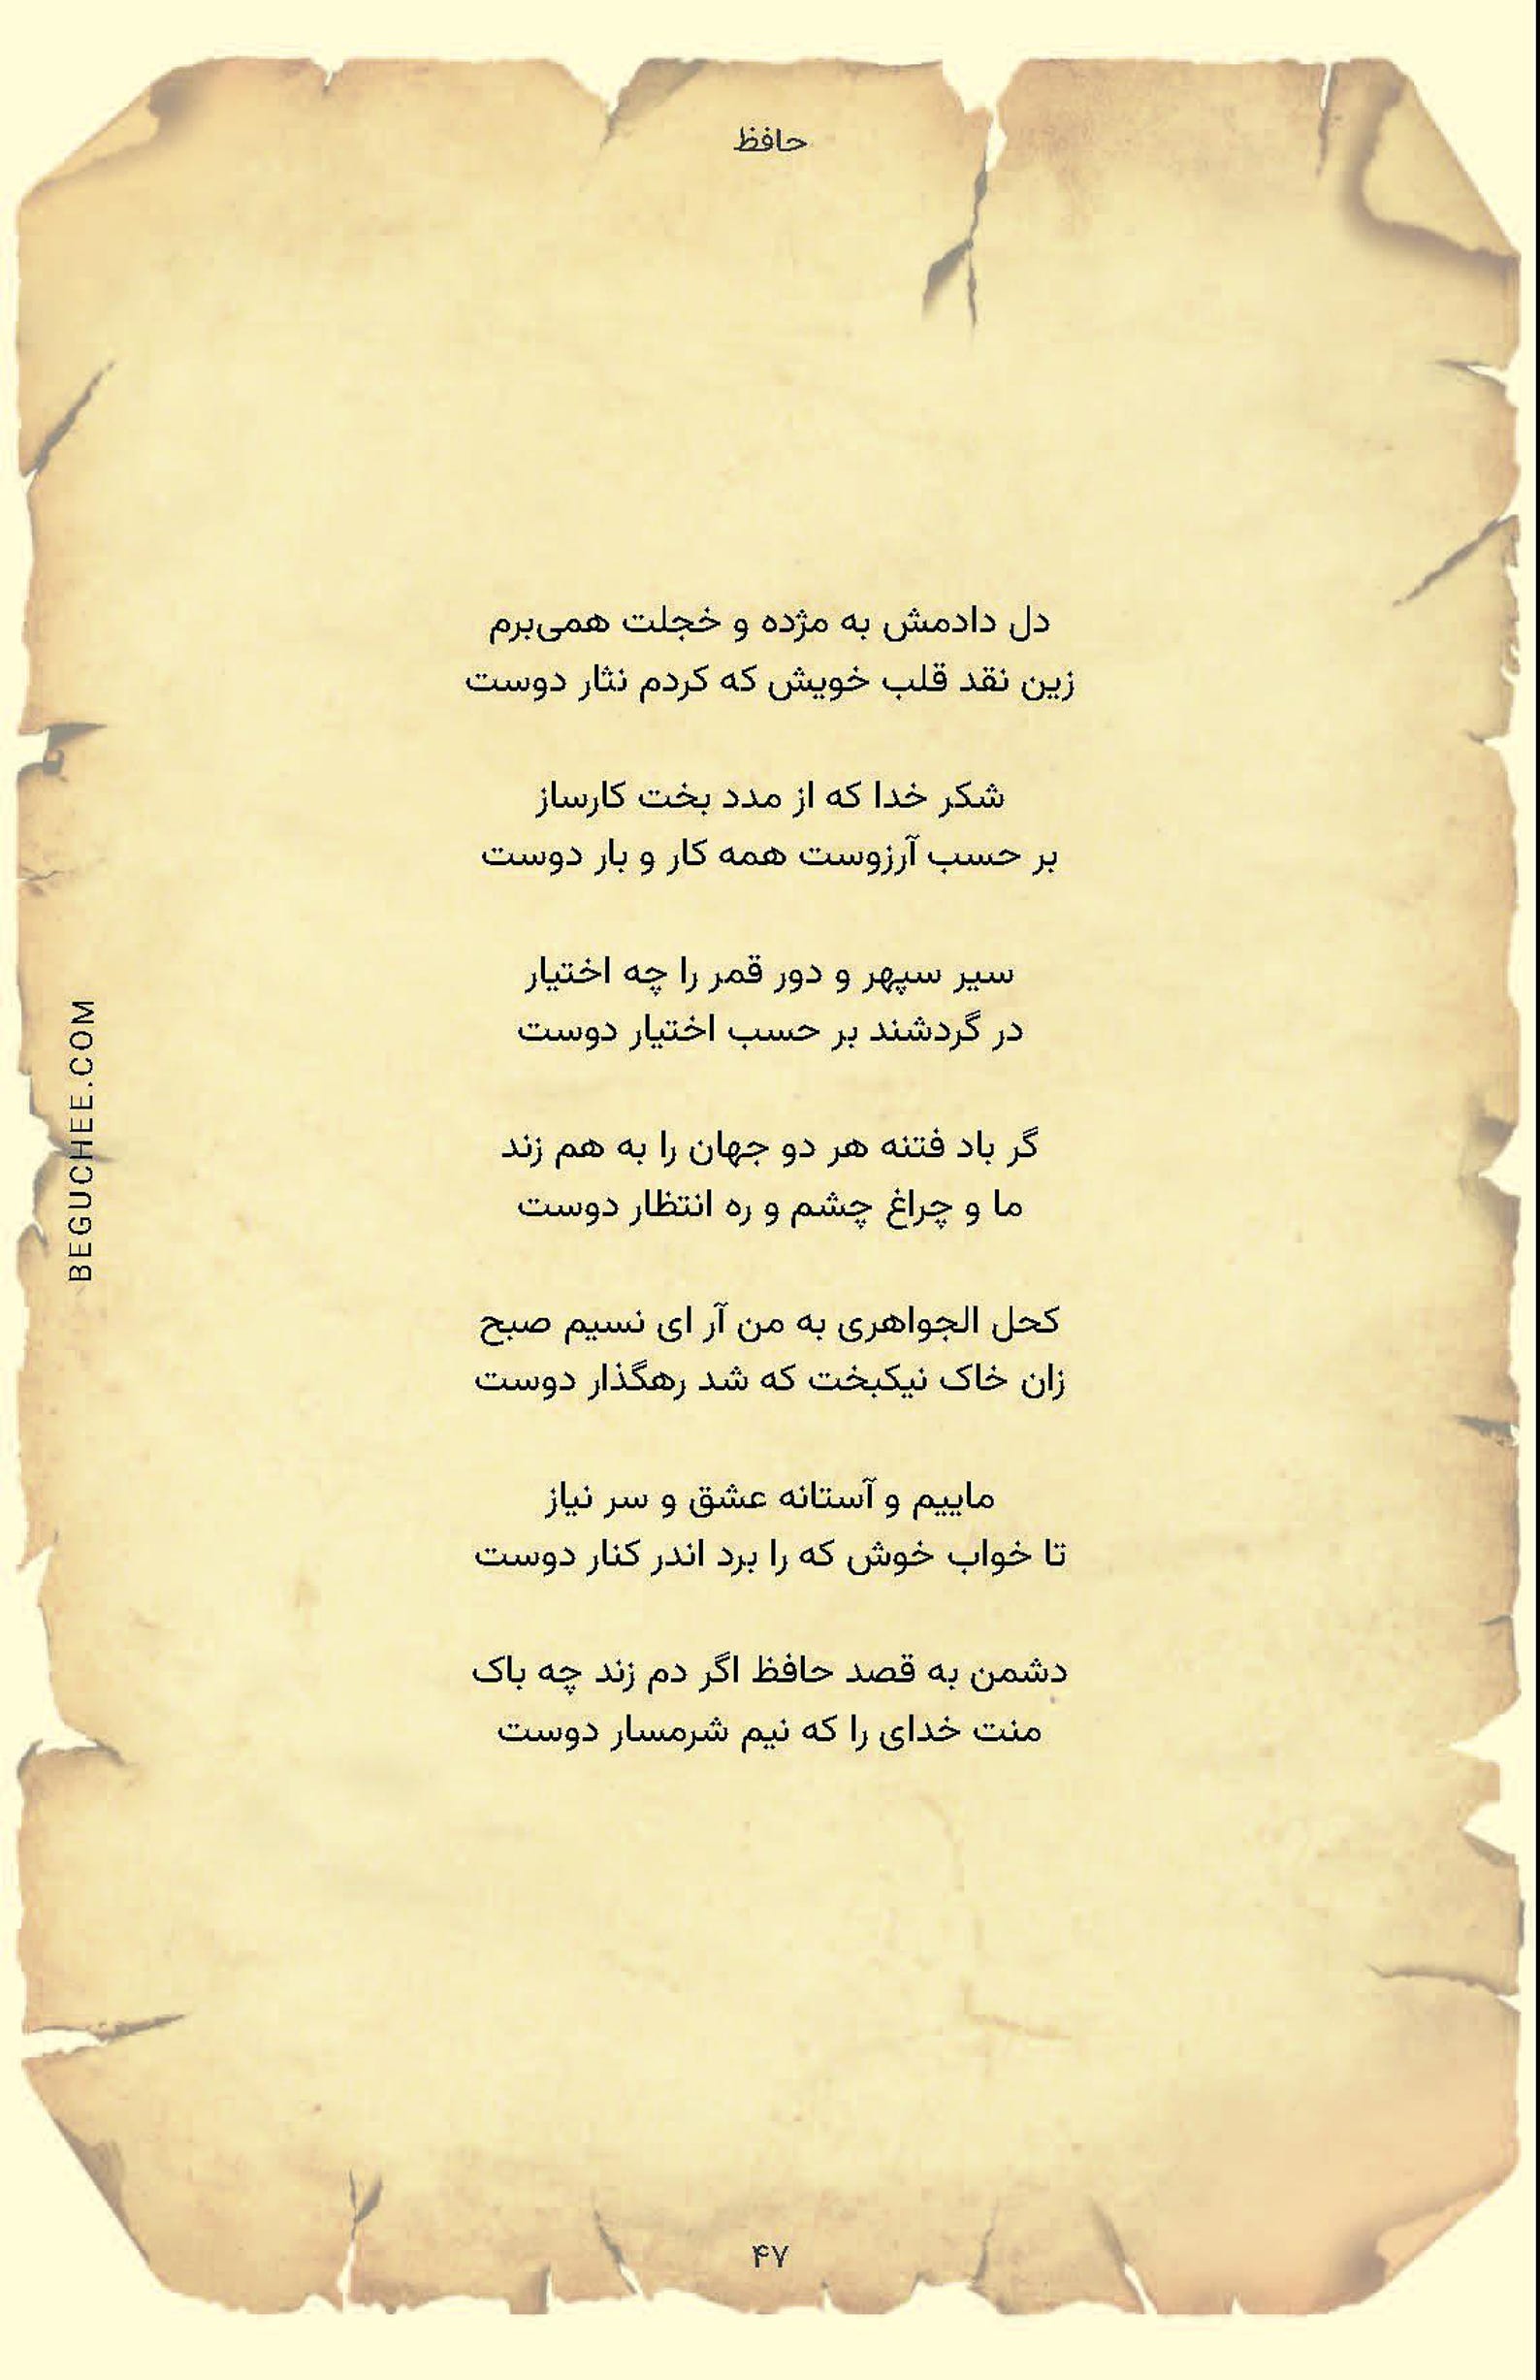 حافظ
دل دادمش به مژده و خجلت همی‌برم
زین نقد قلب خویش که کردم نثار دوست
شکر خدا که از مدد بخت کارساز
بر حسب آرزوست همه کار و بار دوست
سیر سپهر و دور قمر را چه اختیار
در گردشند بر حسب اختیار دوست
گر باد فتنه هر دو جهان را به هم زند
ما و چراغ چشم و ره انتظار دوست
کحل الجواهری به من آر ای نسیم صبح
زان خاک نیکبخت که شد رهگذار دوست
ماییم و آستانه عشق و سر نیاز
تا خواب خوش که را برد اندر کنار دوست
دشمن به قصد حافظ اگر دم زند چه باک
منت خدای را که نیم شرمسار دوست
BEGUCHEE.COM
۴۷